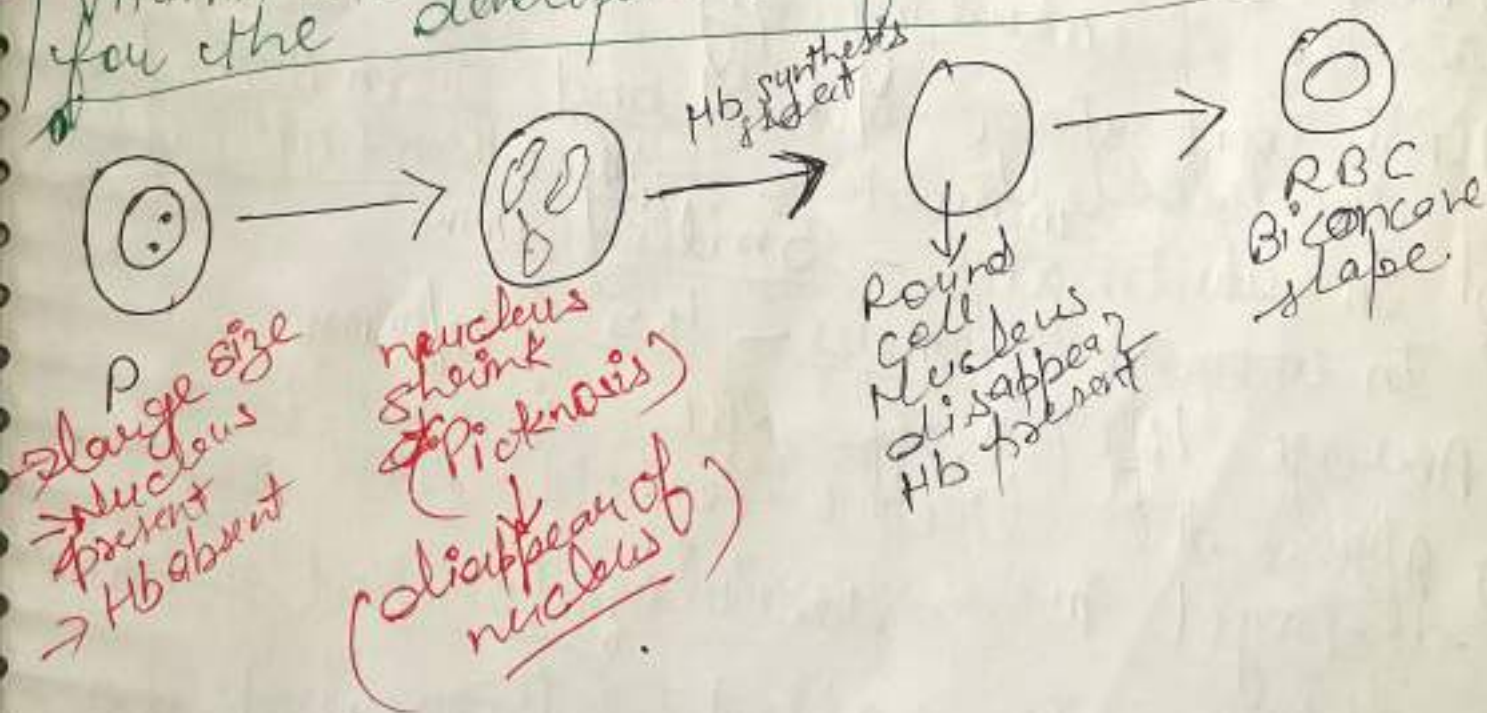 for the
Hb synthesis
P
→ large size
→ Nucleus
present
→ Hb absent
neucleus
shrink
(Picknosis)
(diappear of
nucleus)
Round
cell
Nucleus
disappear
Hb present
RBC
Biconcave
shape.